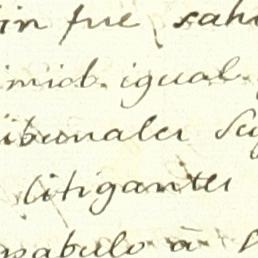 in fue, sah
imid. igual
ibunales Su
litigantes
pabulo à